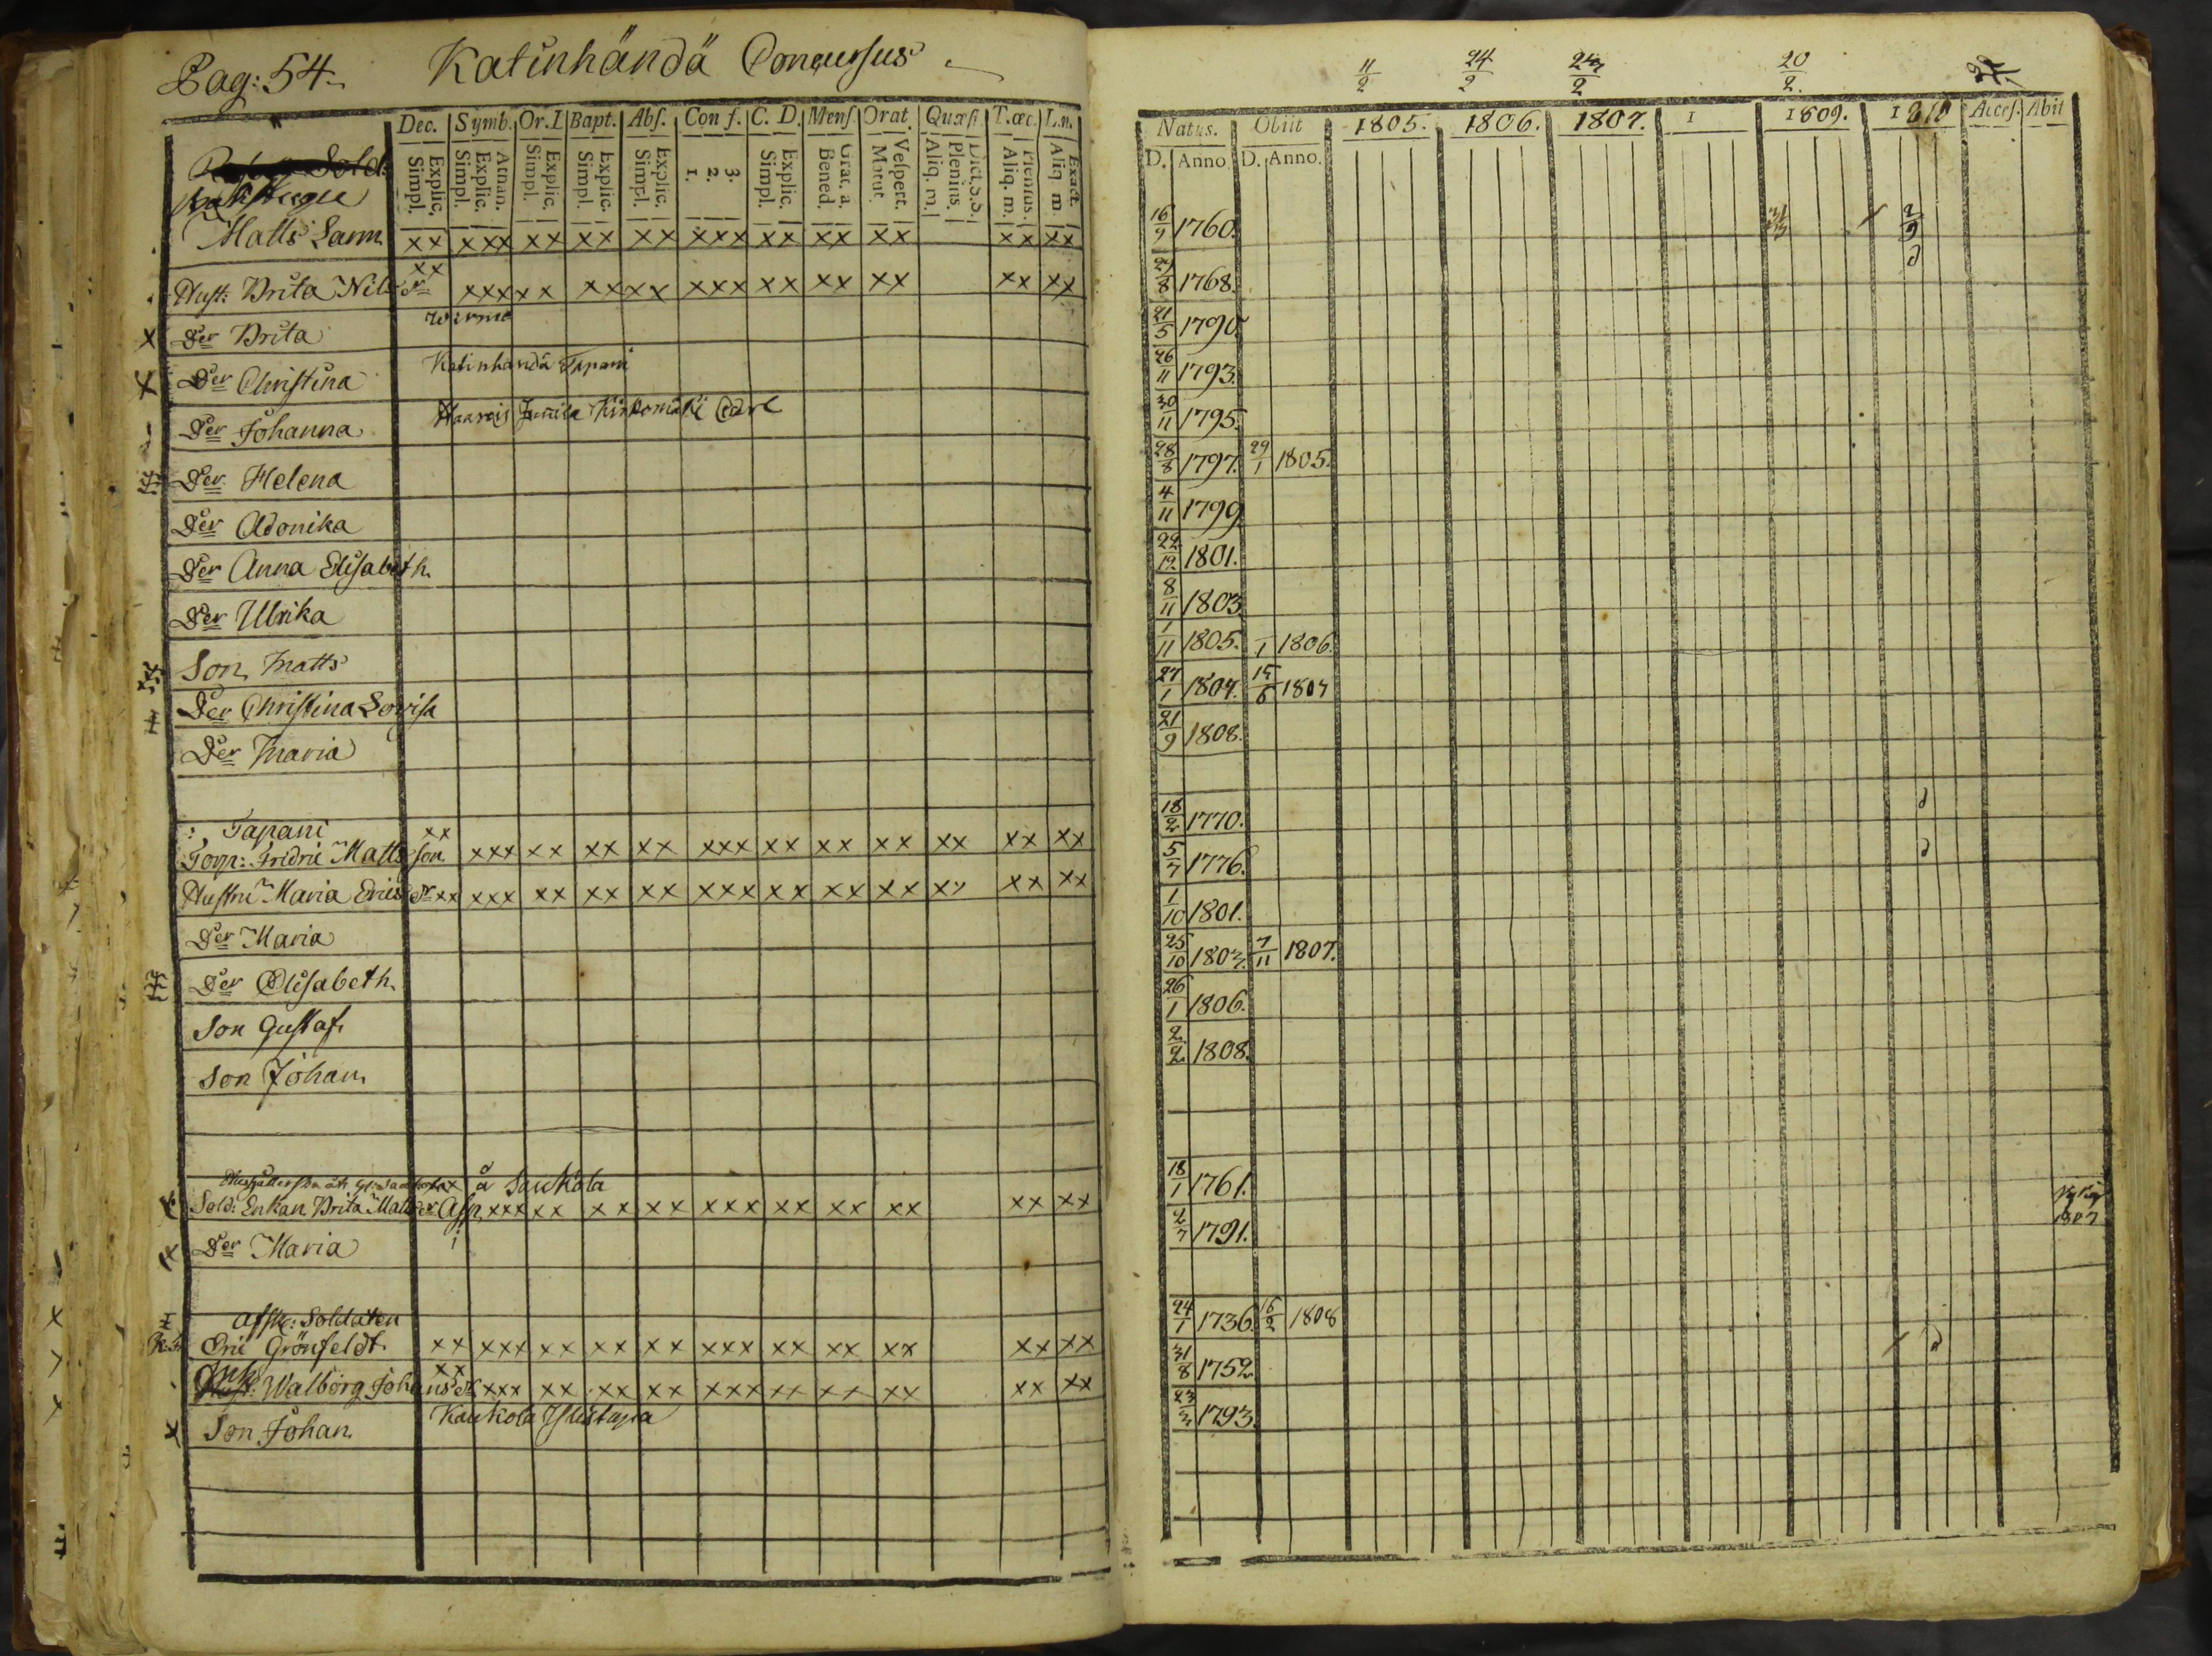 Pag: 54. Katinhändä Concursus
Dec. Symb. Or. I Bapt. Abs. Conf. C. D. Mens. Orat. Quæst. T. œc. L.n.
Explic. Simpl. Athan. Explic. Simpl. Explic. Simpl. Explic. Simpl. Explic. Simpl. 3. 2. 1. Explic. Simpl. Grat. a. Bened. Vespert. Matut. Dict. S.S. Plenius. Aliq. m. Plenius. Aliq. m. Exact. Aliq. m.
Sold:
Matts Lann xx xxx xx xx xx xxx xx xx xx xx xx
Hust: Brita Nils dr xx xxx xx xx xx xxx xx xx xx xx xx
x Der Brita
x Der Christina Katinhändä Tapani
Der Johanna Carl
Der Helena
Der Adonika
Der Anna Elisabeth
Der Ulrika
Son Matts
Der Christina Lovisa
Der Maria
Tapani
Torp: Fridric Matts son xx xxx xx xx xx xxx xx xx xx xx xx xx
Hustru Maria Erics dr xx xxx xx xx xx xxx xx xx xx xx xx xx
Der Maria
Der Elisabeth
Son Gustaf
Son Johan
å Saukola
Sold: Enkan Brita Matts dr xxx xx xx xx xxx xx xx xx xx xx
Der Maria
Afsk: Soldaten
Eric Grönfeldt xx xxx xx xx xx xxx xx xx xx xx xx
Enk: Walborg Johans dr xx xxx xx xx xx xxx xx xx xx xx xx
x Son Johan Kaukola
11/2 24/2 24/2 20/2
Natus. Obiit 1805. 1806. 1807. 1 1809. 1810 Access. Abit
D. Anno D. Anno.
16/9 1760.
29/8 1768.
21/5 1790.
26/11 1793.
30/11 1795.
28/8 1797. 29/1 1805.
4/11 1799
22/12 1801.
8/11 1803
1/11 1805. 1806.
27/1 1807. 15/6 1807
21/9 1808.
18/2 1770.
5/7 1776.
1/10 1801.
25/10 1803. 7/11 1807.
26/1 1806.
2/2 1808.
18/1 1761.
2/7 1791. 1807
24/1 1736 16/2 1808
31/8 1752
23/3 1793